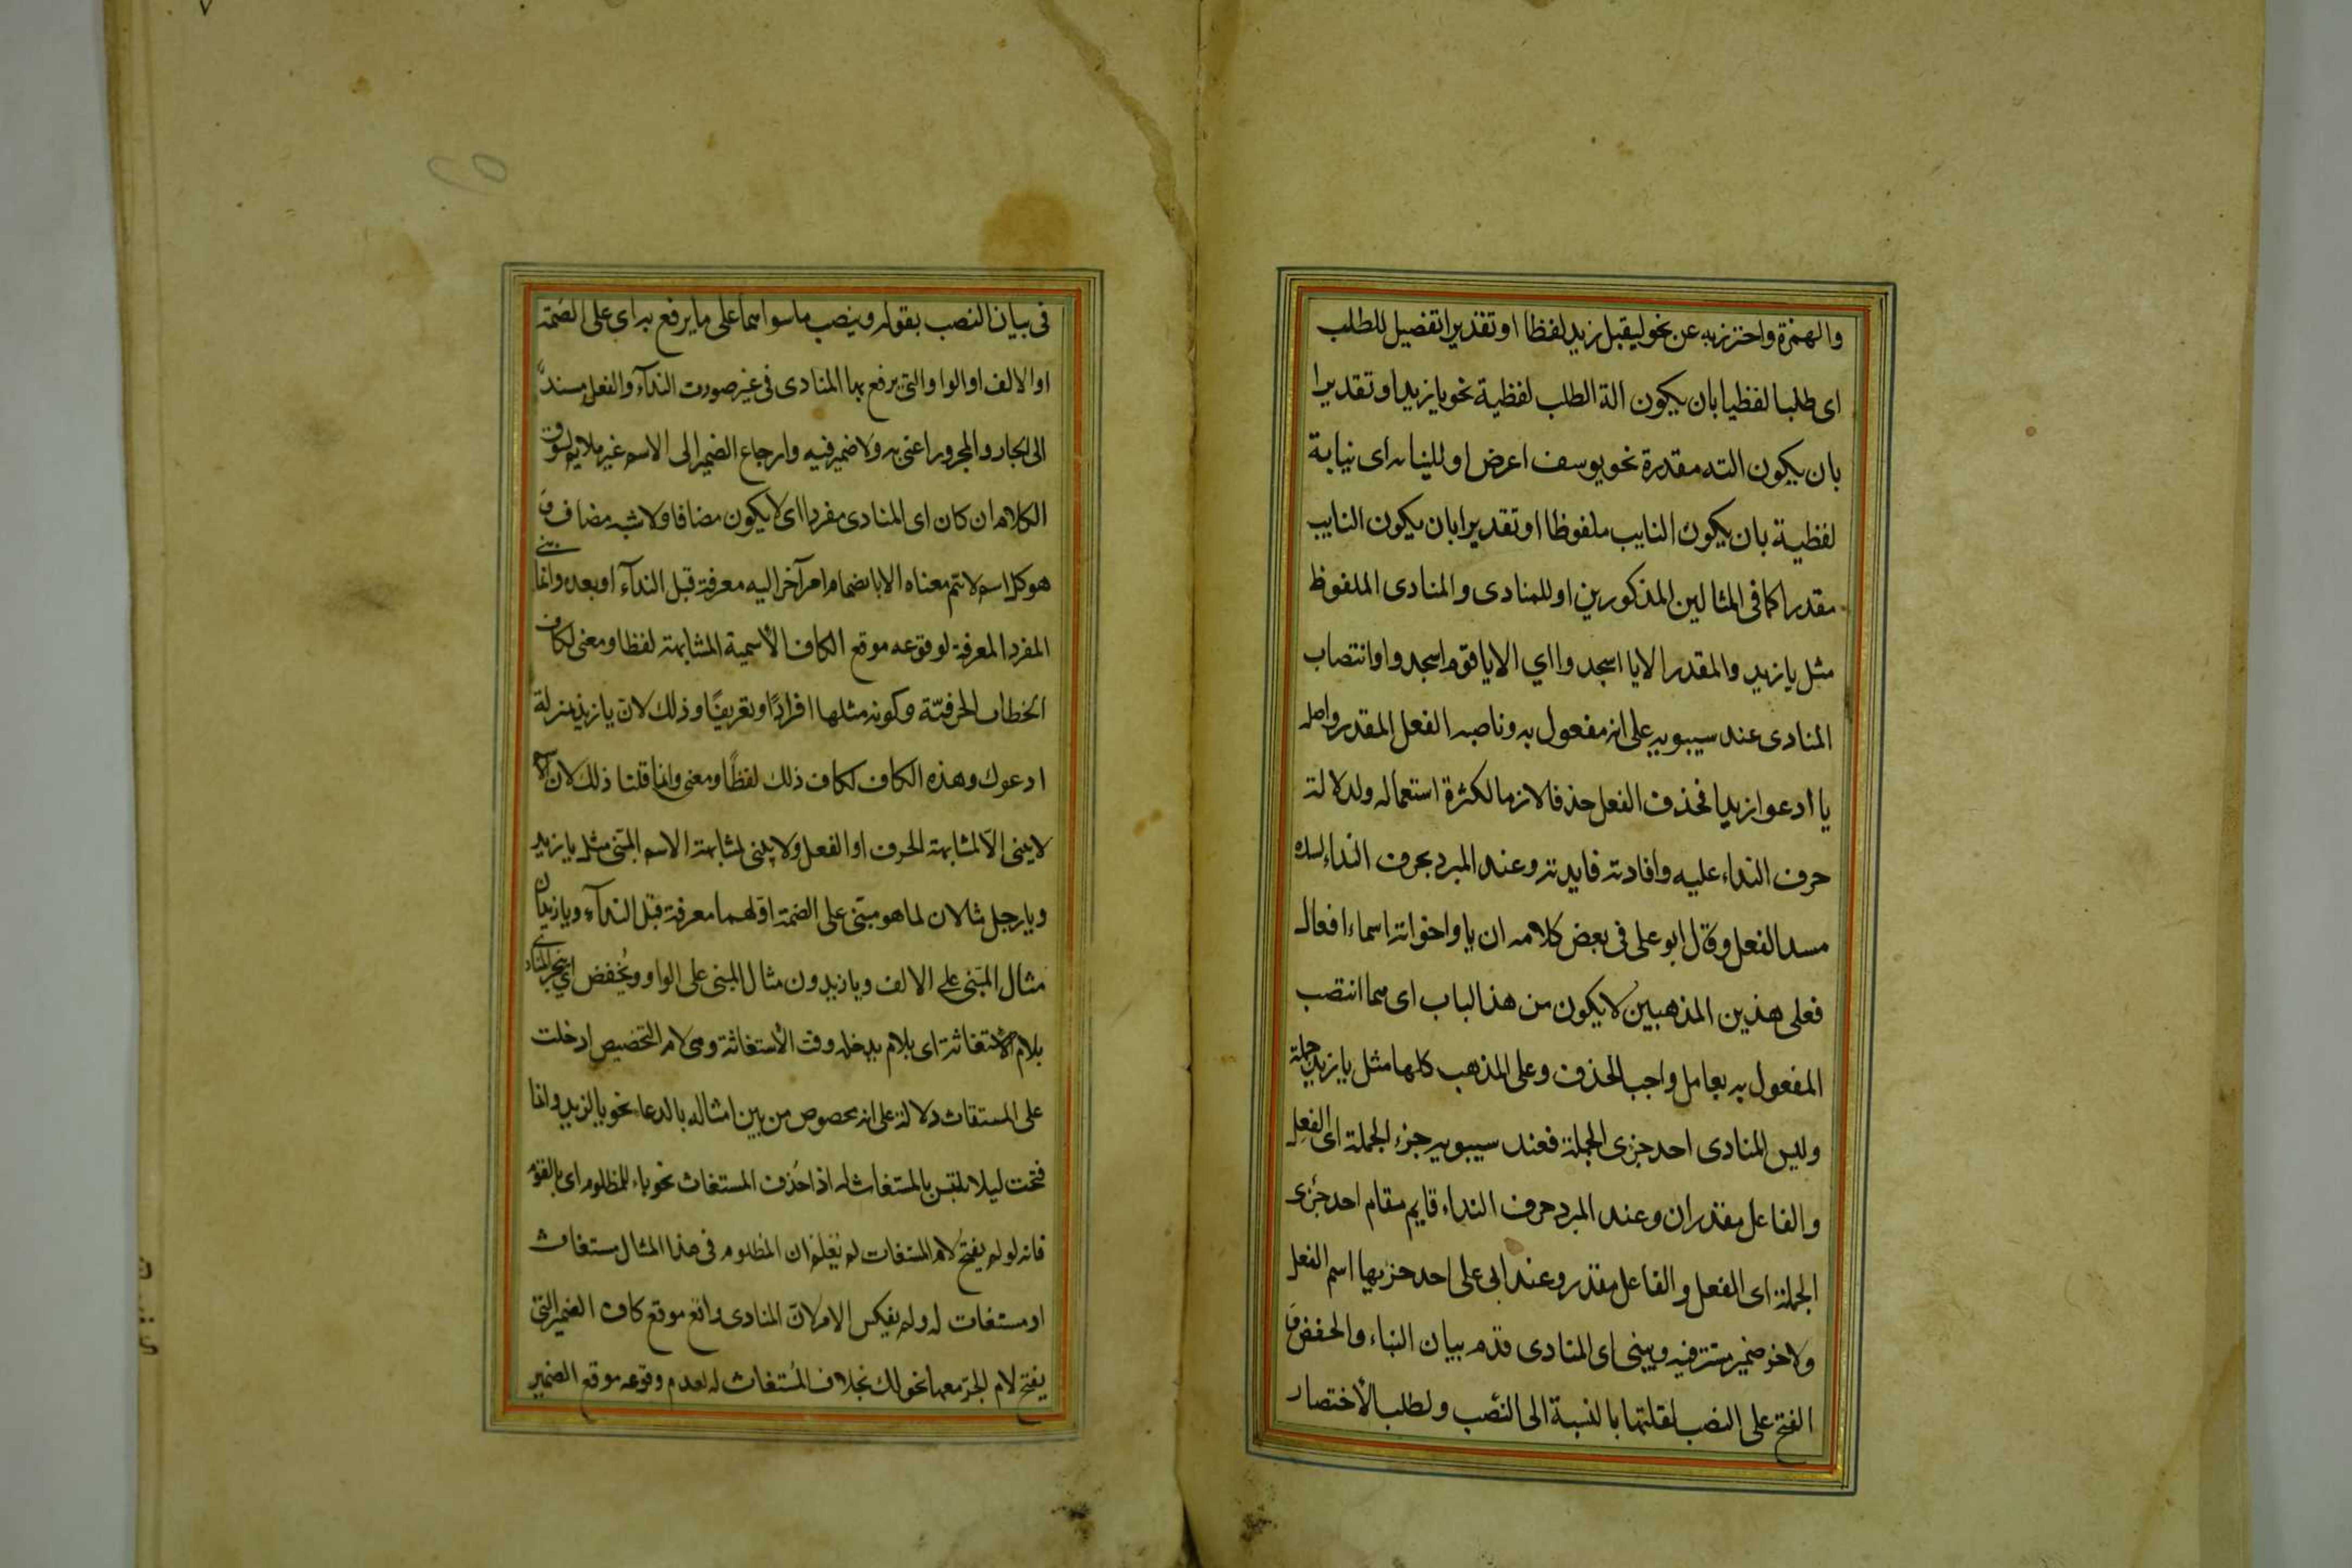 والهمزة واحترز به عن نحو ليقبل زيد لفظا او تقديرا تفصيل للطلب
اى طلبا لفظيا بان يكون الة الطلب لفظية نحو يا زيد او تقديرا
بان يكون الته مقدرة نحو يوسف اعرض او للنيابه اى نيابة
لفظية بان يكون النايب ملفوظا او تقديرا بان يكون النايب
مقدرا كما فى المثالين المذكورين او للمنادى والمنادى الملفوظ
مثل يا زيد والمقدر الا يا اسجدوا اي الا يا قوم اسجدوا وانتصاب
المنادى عند سيبويه على انه مفعول به وناصبه الفعل المقدر واصله
يا ادعو زيدا فحذف الفعل حذفا لازما لكثرة استعماله ولدلالة
حرف النداء عليه وافادته فايدته وعند المبرد بحرف النداء لسده
مسد الفعل وقال ابو على فى بعض كلامه ان يا واخواته اسماء افعال
فعلى هذين المذهبين لا يكون من هذ الباب اى مما انتصب
المفعول به بعامل واجب الحذف وعلى المذهب كلها مثل يا زيد جملة
وليس المنادى احد جزئ الجملة فعند سيبويه جزء الجملة اى الفعل
والفاعل مقدران وعند المبرد حرف النداء قايم مقام احد جزئى
الجملة اى الفعل والفاعل مقدر وعند ابى على احد جزيها اسم الفعل
ولاخر ضمير مستتر فيه ويبنى اى المنادى قدم بيان البناء والخفض و
الفتح على النصب لقلتها بالنسبة الى النصب ولطلب الأختصار
فى بيان النصب بقوله وينصب ما سواهما على ما يرفع به اى على الضمة
او الالف او الواو التى يرفع بها المنادى فى غير صورت الندآء والفعل مسند
الى الجار والمجرور اعنى به ولا ضمير فيه وارجاع الضمير الى الاسم غير ملايم لسوق
الكلام ان كان اى المنادى مفردا اى لا يكون مضافا ولا شبه مضاف و
هو كل اسم لا تتم معناه الا بانضمام امر آخر اليه معرفة قبل الندآء او بعده وانما بنى
المفرد المعرفة لوقوعه موقع الكاف الأسمية المشابهة لفظا ومعنى لكاف
الخطاب الحرفيّة وكونه مثلها افرادًا وتعريفًا وذلك لان يا زيد بمنزلة
ادعوك وهذه الكاف لكاف ذلك لفظًا ومعنى وانما قلنا ذلك لان الاسم
لا يبنى الّا لمشابهة الحرف او الفعل ولا يبنى لمشابهة الاسم المبنى مثل يا زيد
ويا رجل مثالان لما هو مبنى على الضمة اولهما معرفة قبل الندآء ويا زيدان
مثال المبنى على الالف ويا زيدون مثال المبنى على الواو ويُخفض اي ينجر المنادى
بلام الاستغاثة اى بلام يدخله وقت الأستغاثة وهى لام التخصيص ادخلت
على المستغاث دلالة على انه مخصوص من بين امثاله بالدعاء نحو يا لزيد وانما
فتحت ليلا يلتبس بالمستغاث له اذا حُذف المستغاث نحو ياء للمظلوم اى يا لقوم
فانه لو لم يفتح لام المستغاث لم يعلم ان المظلوم فى هذا المثال مستغاث
او مستغاث له ولم يعكس الامر لانّ المنادى واقع موقع كاف الضمير التى
يفتح لام الجرّ معها نحو لك بخلاف المُستغاث له لعدم وقوعه موقع الضمير